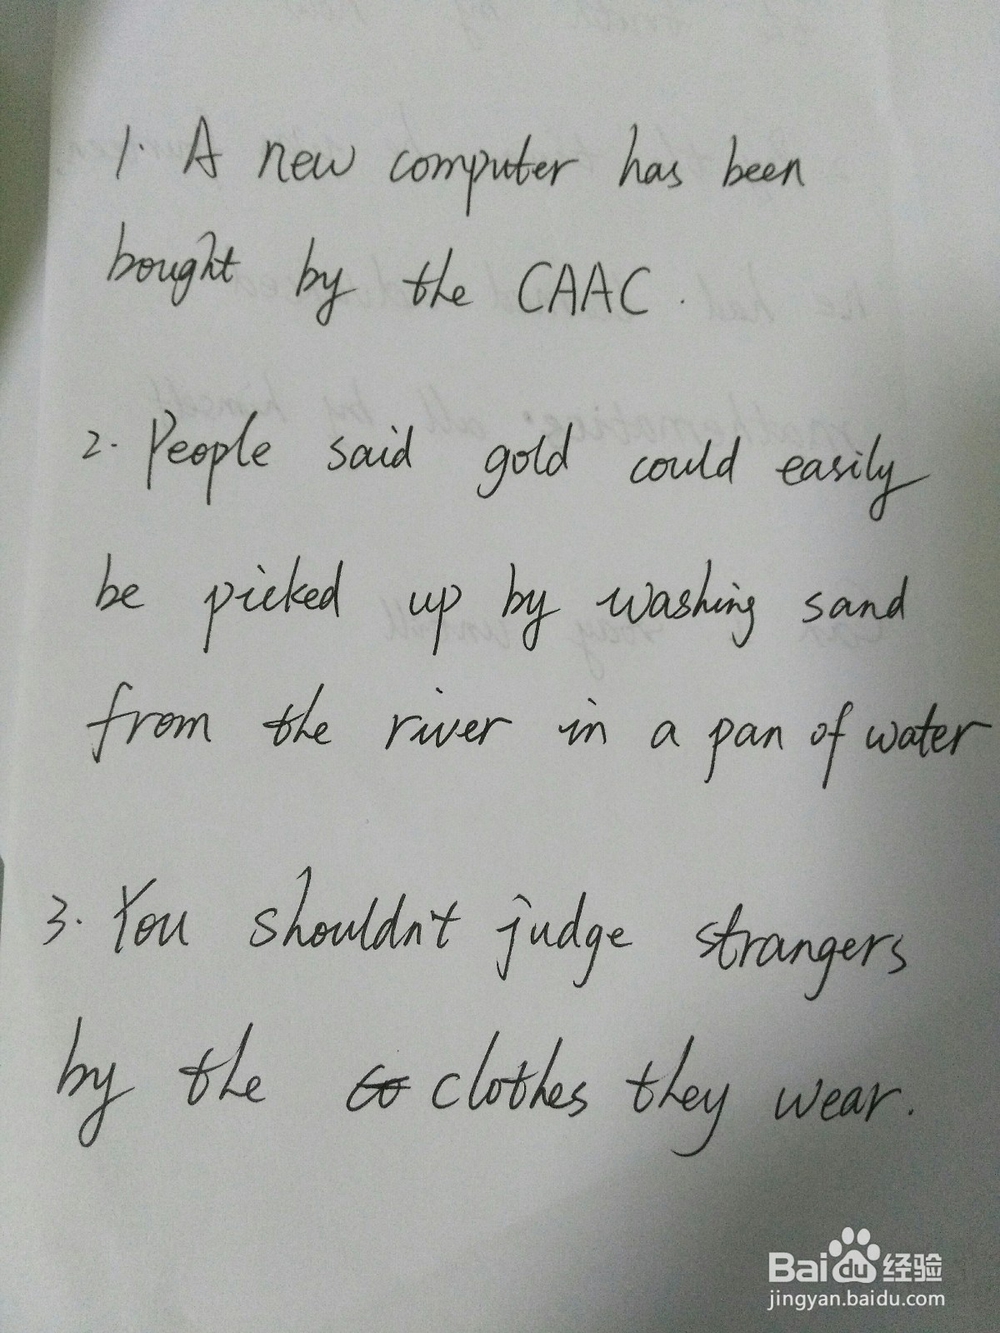 1. A new computer has been
bought by the CAAC.
2. People said gold could easily
be picked up by washing sand
from the river in a pan of water
3. You shouldn't judge strangers
by the clothes they wear.
Baidu经验
jingyan.baidu.com